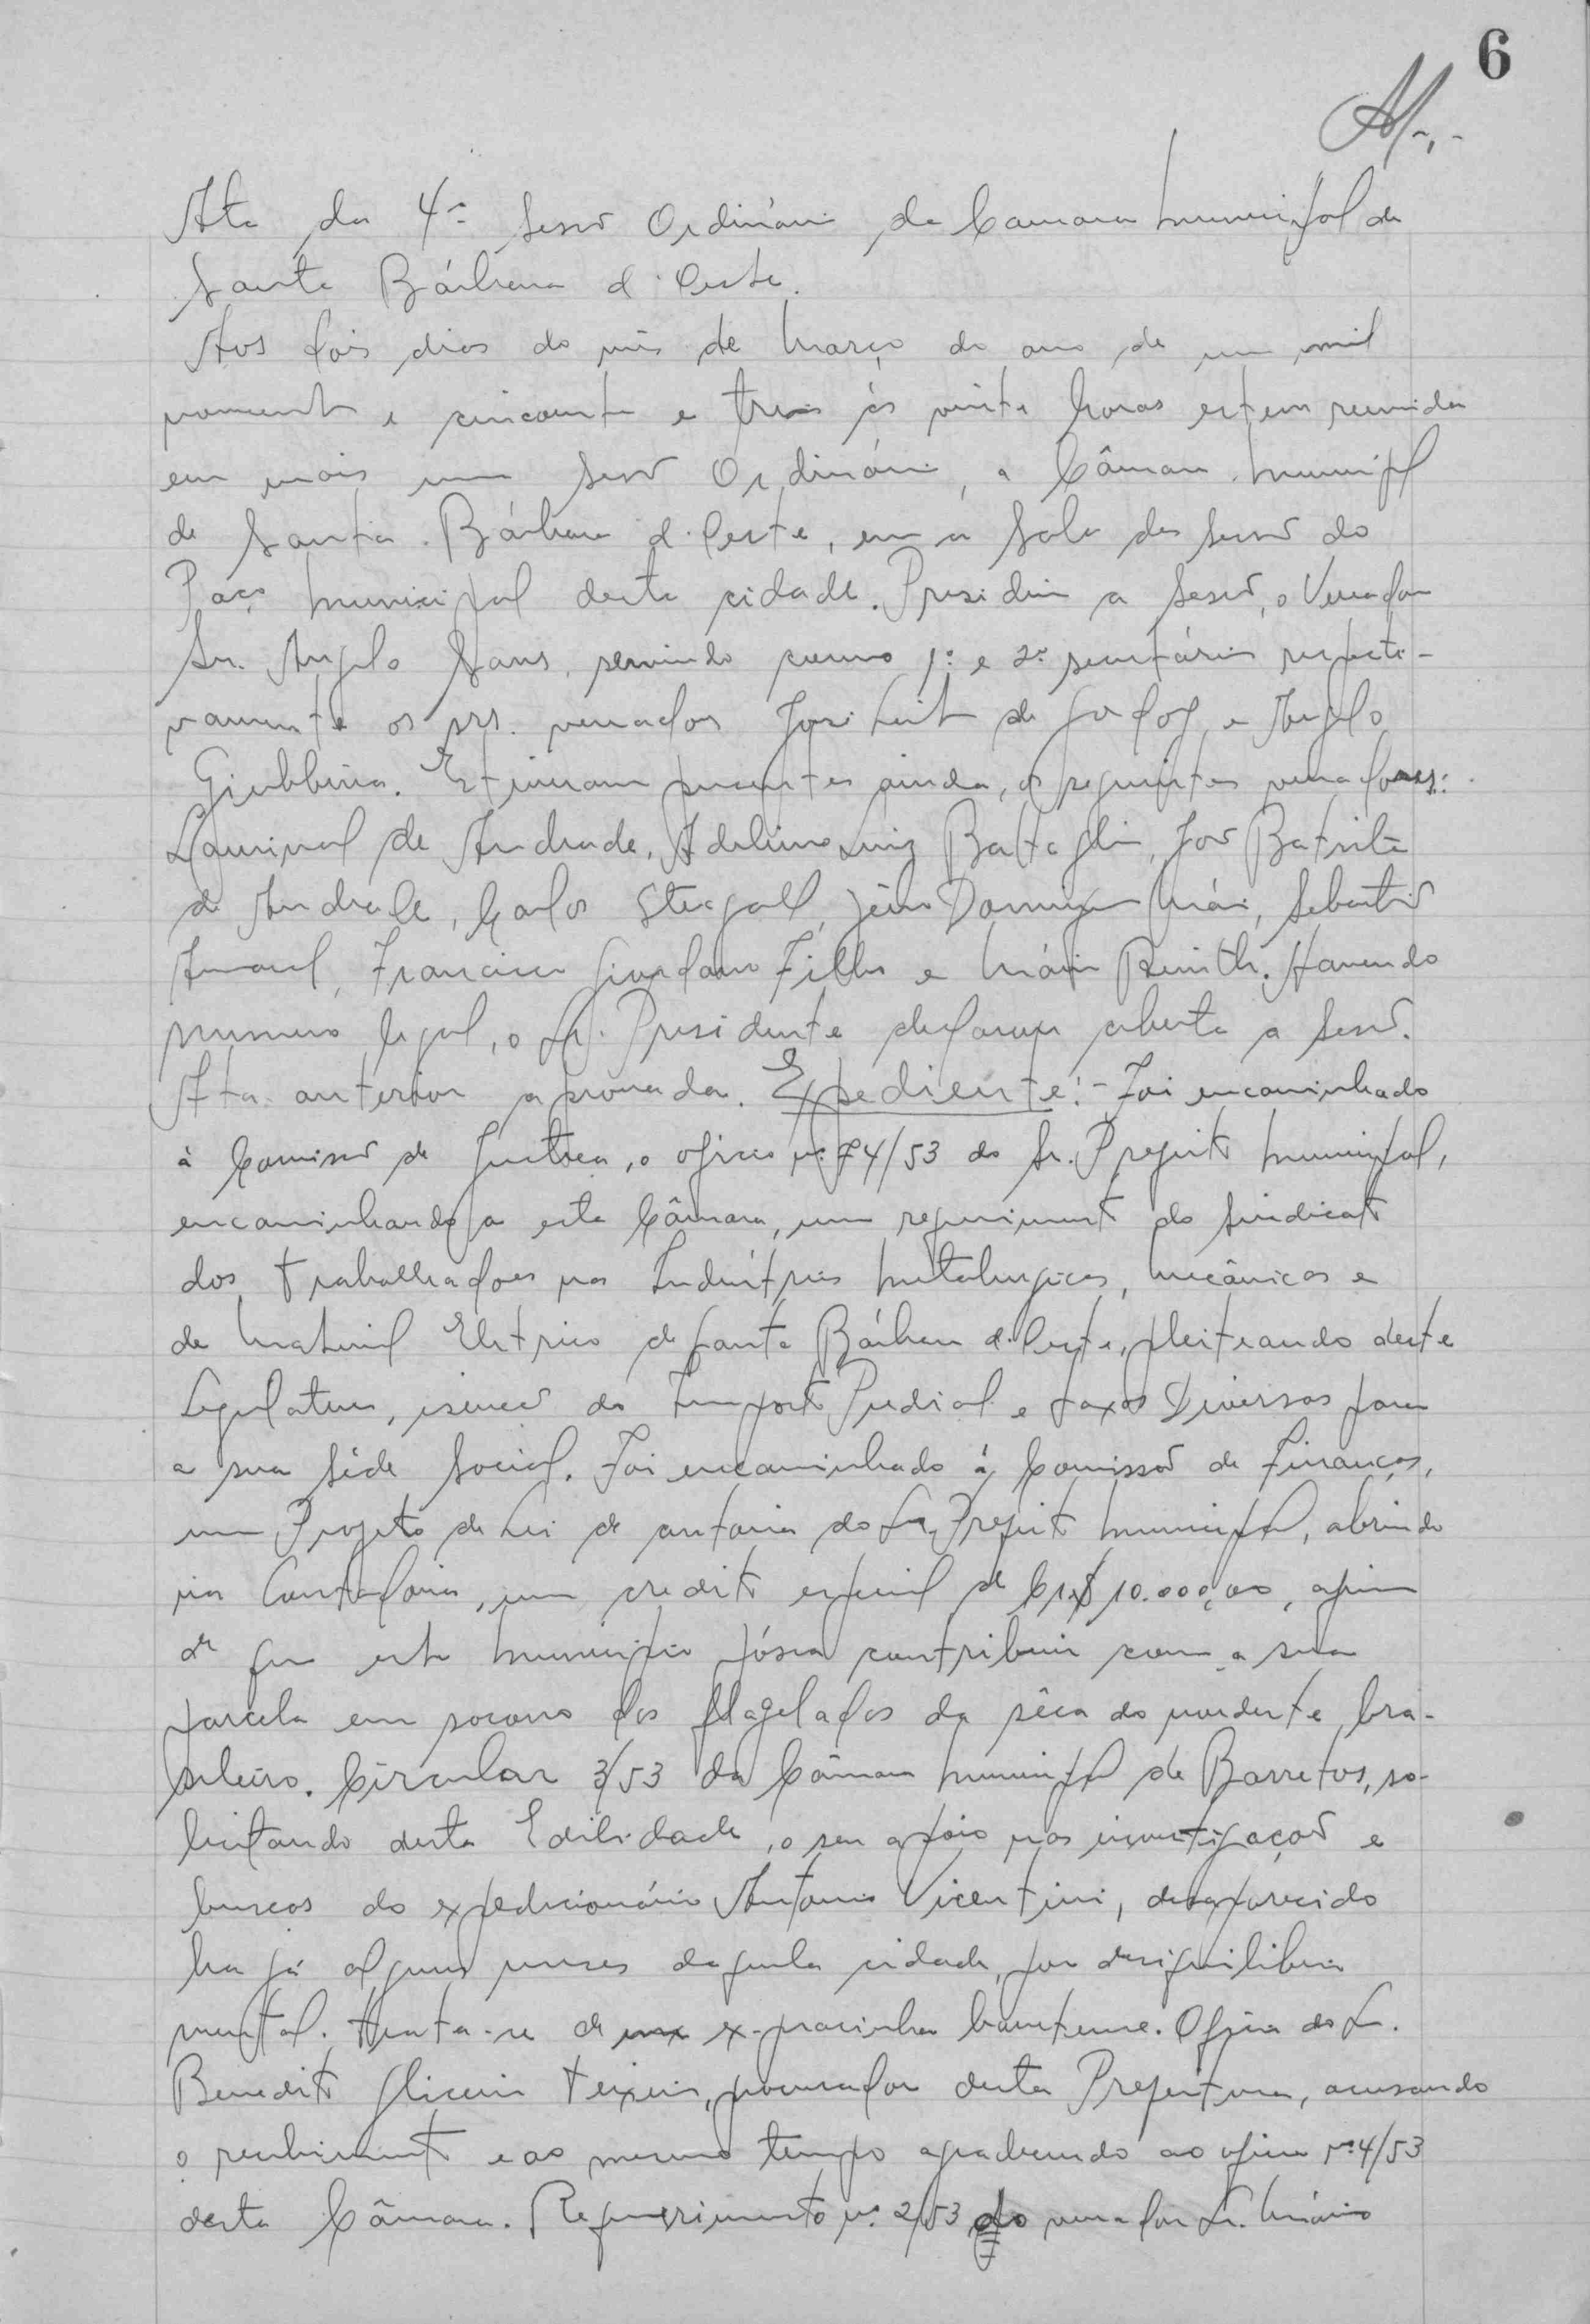 6
Ata da 4ª Sessão Ordinária da Camara Municipal de
Santa Bárbara d'Oeste.
Aos dois dias do mês de Março do ano de um mil
novecentos e cincoenta e tres ás vinte horas esteve reunida
em mais uma Sessão Ordinária, a Câmara Municipal
de Santa Bárbara d'Oeste, em a Sala das Sessões do
Paço Municipal desta cidade. Presidiu a Sessão, o Vereador
Sr. Angelo Sans, servindo como 1º e 2º secretários respecti-
vamente os srs. vereadores José Leite de Godoy e Angelo
Giubbina. Estiveram presentes ainda, os seguintes vereadores:
Lourival de Andrade, Adelino Luiz Bataglin, João Batista
de Andrade, Carlos Steagall, Domingos Mári, Sebastião
Amaral, Francisco Giordano Filho e Mário Reinith. Havendo
numero legal, o Sr. Presidente declarou aberta a Sessão.
Ata anterior aprovada. Expediente:- Foi encaminhado
à Comissão de Justiça, o oficio nº 74/53 do Sr. Prefeito Municipal,
encaminhando a esta Câmara, um requerimento do Sindicato
dos Trabalhadores nas Indústrias Metalurgicas, Mecânicas e
de Material Eletrico de Santa Bárbara d'Oeste, pleiteando deste
Legislativo, isenção do Imposto Predial e Taxas Diversas para
a sua Séde Social. Foi encaminhado à Comissão de Finanças,
um Projeto de Lei de autoria do Sr. Prefeito Municipal, abrindo
na Contadoria, um credito especial de Cr$ 10.000,00, afim
de que este Municipio póssa contribuir com a sua
parcela em socorro dos flagelados da sêca do nordeste bra-
sileiro. Circular 3/53 da Câmara Municipal de Barretos, so-
licitando desta Edilidade, o seu apoio nas investigações e
buscas do expedicionário Antonio Vicentini, desaparecido
ha já alguns meses daquela cidade, por desiquilibrio
mental. Trata-se de ex-pracinha barretense. Oficio do Sr.
Benedito Glicerio Teixeira, procurador desta Prefeitura, acusando
o recebimento e ao mesmo tempo agradecendo ao oficio nº 4/53
desta Câmara. Requerimento nº 2/53 do vereador Sr. Mário